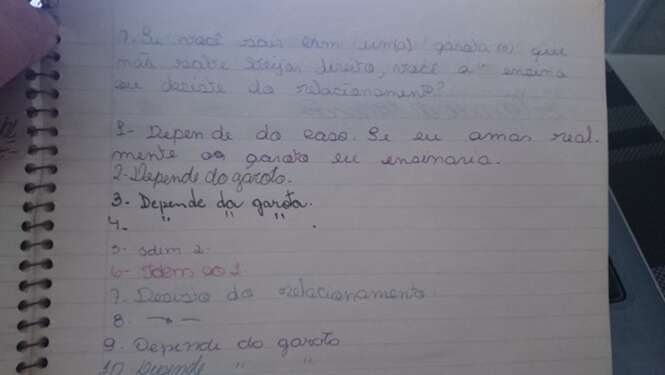 7. Se você sair com uma garota(o) que
não sabe beijar direito, você a ensina
ou desiste do relacionamento?
1- Depende do caso. Se eu amar real-
mente o garoto eu ensinaria.
2- Depende do garoto.
3- Depende da garota.
4. " " " .
5- Idem 2.
6- Idem ao 1
7- Desisto do relacionamento
8. —
9. Depende do garoto
10. Depende " "